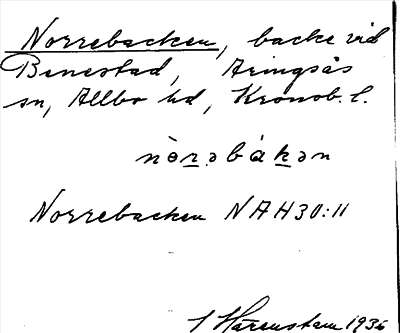 Norrebacken, backe vid
Benestad, Aringsås
sn, Allbo hd, Kronob. l.
nò̱rəbákən
Norrebacken NAH30:11
Harenstam 1935